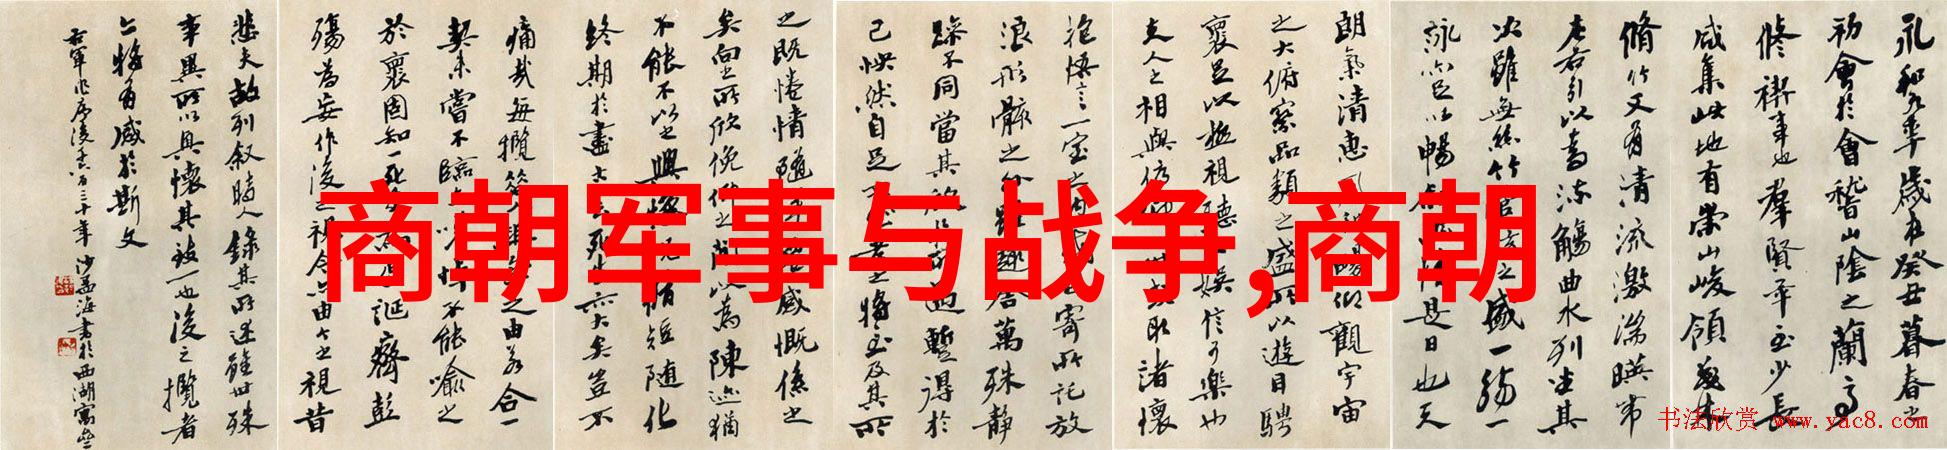 永和九年歲在癸丑暮春之
初會於會稽山陰之蘭亭
修禊事也群賢畢至少長
咸集此地有崇山峻領茂林
脩竹又有清流激湍暎帶
左右引以為流觴曲水列坐其
次雖無絲竹管弦之盛一觴一
詠亦足以暢是日也天
朗氣清惠風和暢仰觀宇宙
之大俯察品類之盛所以遊目騁
襄足以極視聽娛信可樂也
夫人之相與俯仰或取諸懷
抱悟言一室之內寄所託放
浪形骸之外雖趣舍萬殊靜
躁不同當其欣所遇蹔得於
己怏然自足老之將至及其所
之既惓情隨感慨係之
矣向之所欣俛仰之間以為陳迹猶
不能不以之興懷脩短随化
終期於盡古死生亦大矣豈不
痛哉每攬昔人興之由若合一
契未嘗不臨不能喻之
於襄固知一死誕齊彭
殤為妄作後之視今亦由今之視昔
悲夫故列敘時人錄其所述雖世殊
事異所以興懷其致一也後之攬者
亦將有感於斯文
右軍作序後千六百三十年沙孟海書於西湖寓廬
商朝军事与战争,商朝
书法欣赏 www.yac8.com